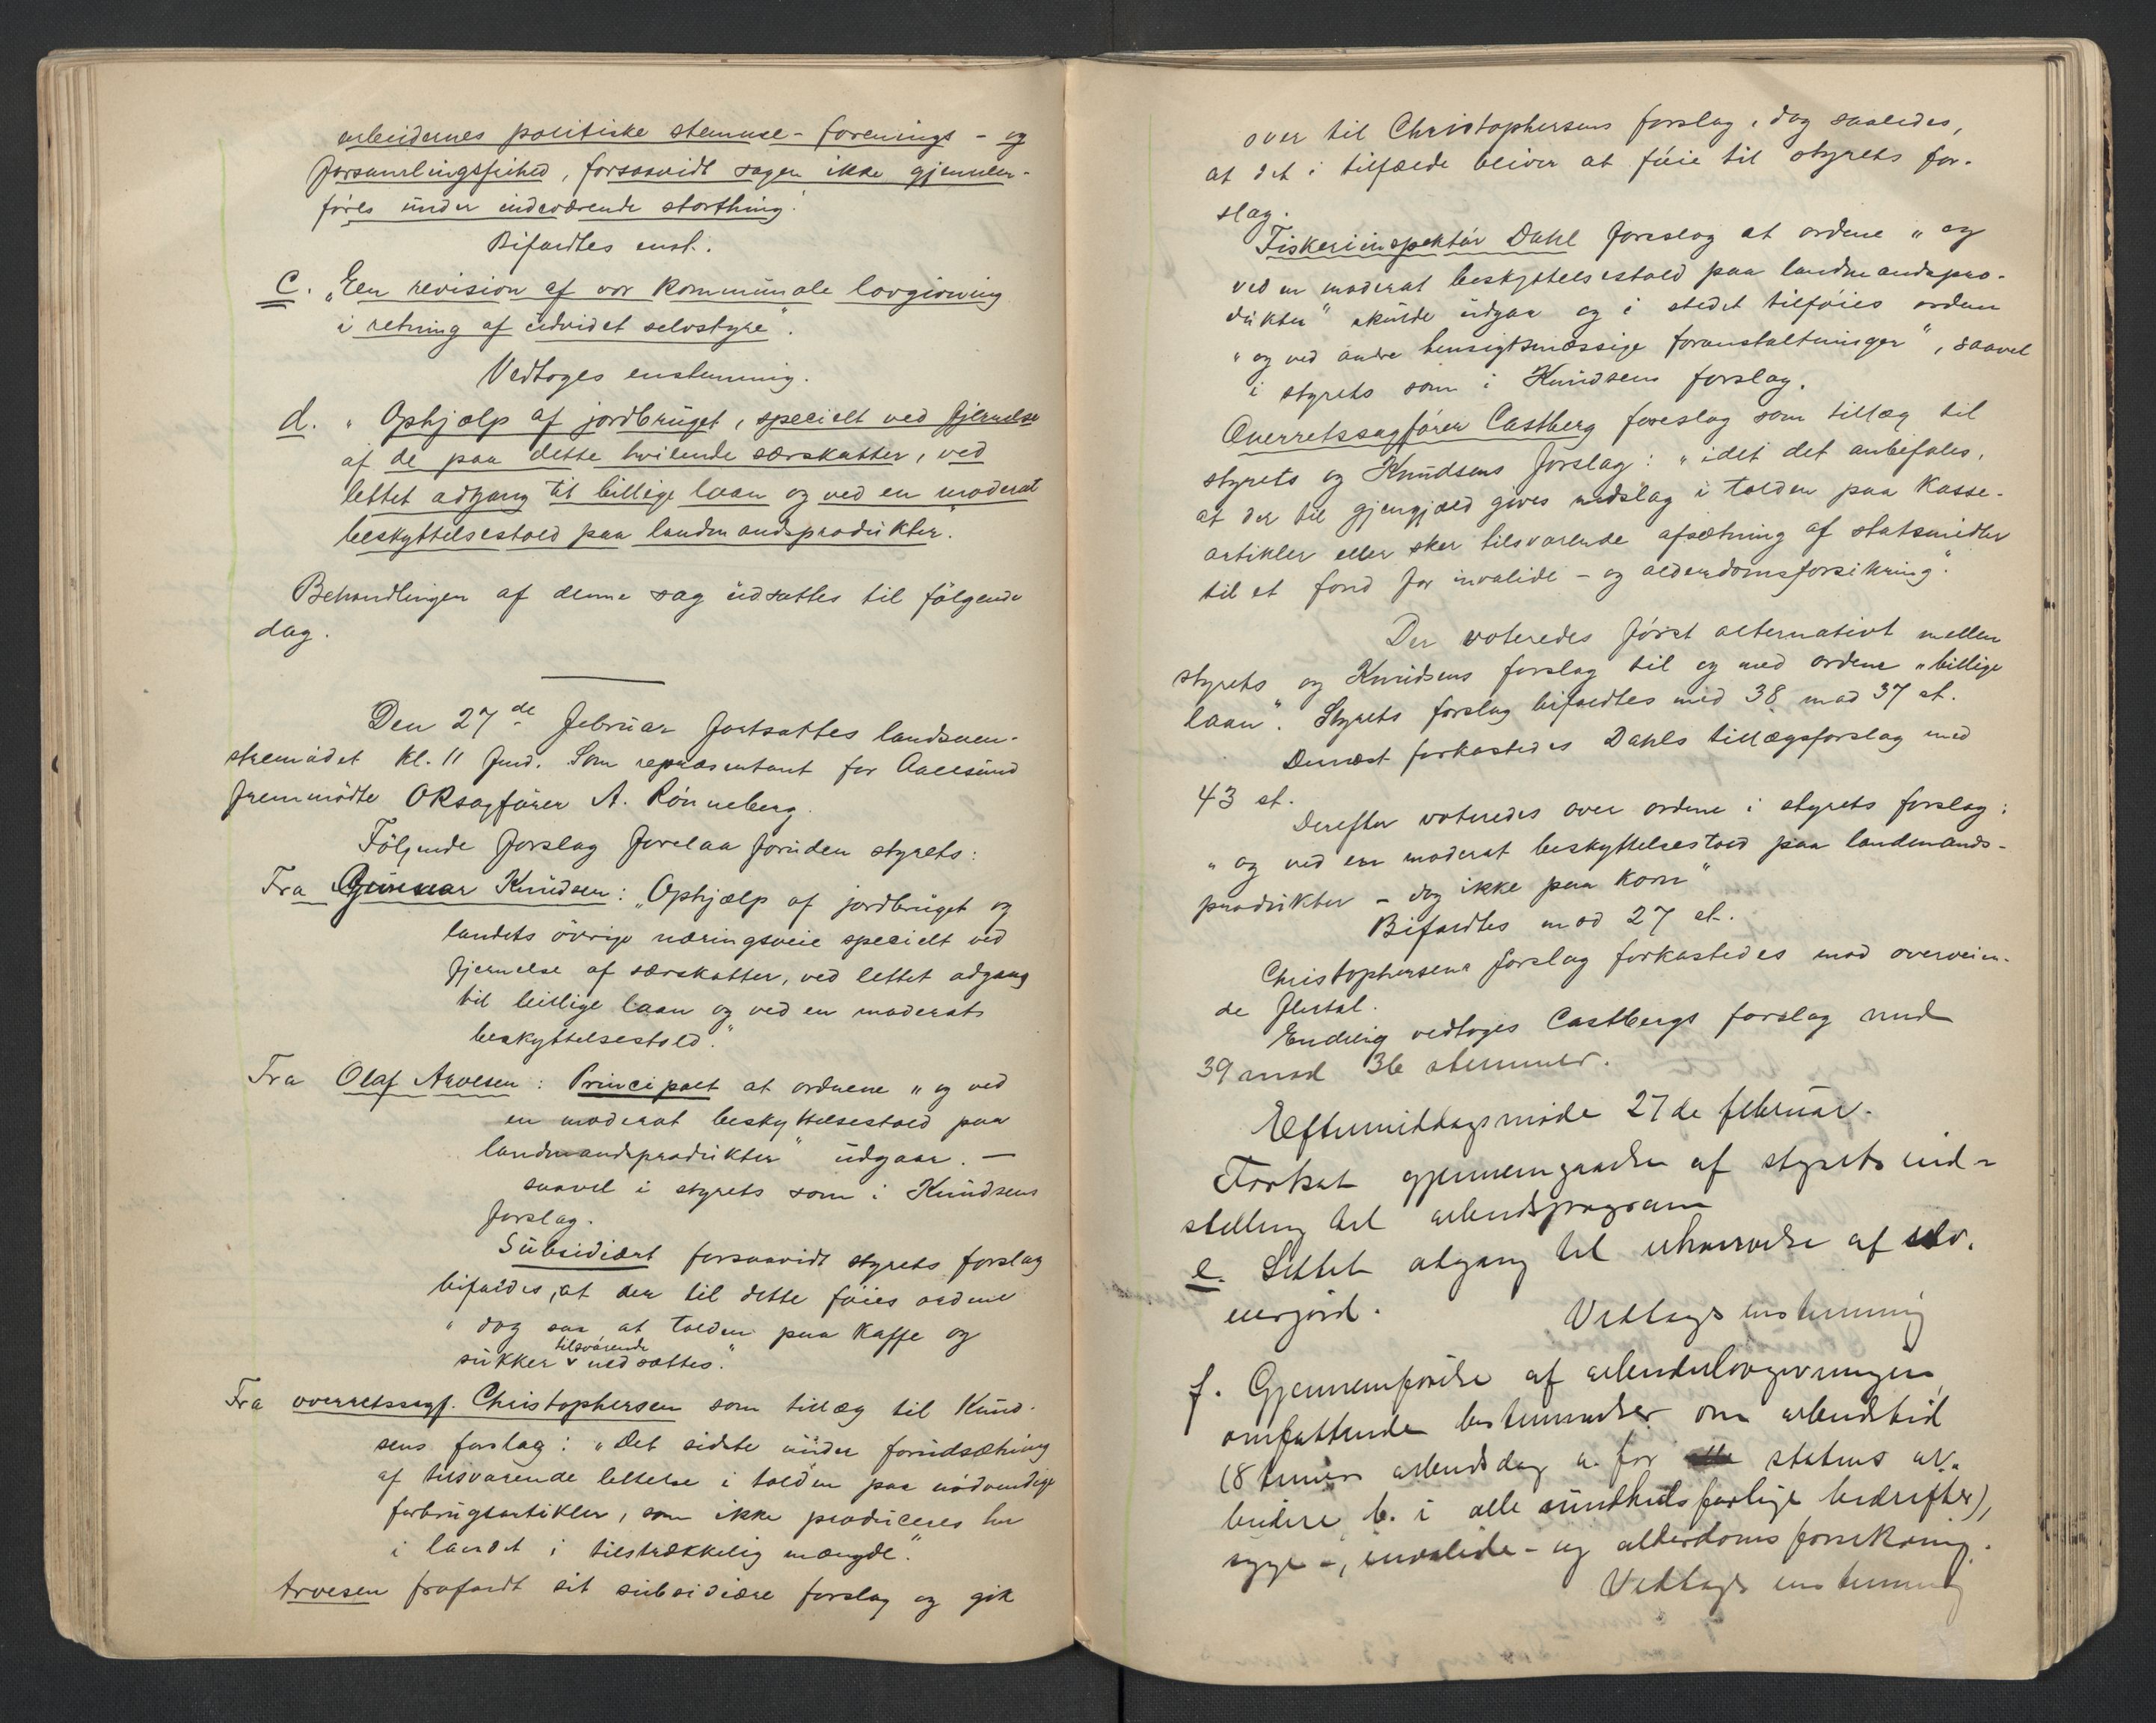 arbeidernes politiske stemme- forenings- og
forsamlingsfrihed, forsaavidt sagen ikke gjennem-
føres under indeværende storthing.
Bifaldtes enst.
c. „En revision af vor kommunale lovgivning
i retning af udvidet selvstyre".
Vedtoges enstemmig.
d. „Ophjælp af jordbruget, specielt ved fjernelse
af de paa dette hvilende særskatter, ved
lettet adgang til billige laan og ved en moderat
beskyttelsestold paa landmandsprodukter."
Behandlingen af denne sag udsattes til følgende
dag.
Den 27de februar fortsattes landsven-
stremødet kl. 11 fmd. Som repræsentant for Aalesund
fremmødte ORsagfører A. Rønneberg.
Følgende forslag forelaa foruden styrets:
Fra Gunnar Knudsen: „Ophjælp af jordbruget og
landets øvrige næringsveie specielt ved
fjernelse af særskatter, ved lettet adgang
til billige laan og ved en moderat
beskyttelsestold."
Fra Olaf Arvesen: Principalt at ordnene „og ved
en moderat beskyttelsestold paa
landmandsprodukter" udgaar. —
saavel i styrets som i Knudsens
forslag.
Subsidiært forsaavidt styrets forslag
bifaldes, at der til dette føies ordene
„dog saa at tolden paa kaffe og
sukker tilsvarende nedsættes."
Fra overretssagf. Christophersen som tillæg til Knud-
sens forslag: „Det sidste under forudsætning
af tilsvarende lettelse i tolden paa nødvendige
forbrugsartikler, som ikke produceres her
i landet i tilstrækkelig mængde."
Arvesen frafaldt sit subsidiære forslag og gik
over til Christophersens forslag, dog saaledes,
at det i tilfælde bliver at føie til styrets for-
slag.
Fiskeriinspektør Dahl foreslog at ordene „og
ved en moderat beskyttelsestold paa landmandspro-
dukter" skulde udgaa og i stedet tilføies ordene
„og ved andre hensigtsmæssige foranstaltninger", saavel
i styrets som i Knudsens forslag.
Overretssagfører Castberg foreslog som tillæg til
styrets og Knudsens forslag: „idet det anbefales,
at der til gjengjæld gives nedslag i tolden paa kasse-
artikler eller sker tilsvarende afsætning af statsmidler
til et fond for invalide- og alderdomsforsikring."
Der voteredes først alternativt mellem
styrets og Knudsens forslag til og med ordene „billige
laan". Styrets forslag bifaldtes med 38 mod 37 st.
Dernæst forkastedes Dahls tillægsforslag med
43 st.
Derefter voteredes over ordene i styrets forslag:
„og ved en moderat beskyttelsestold paa landmands-
produkter – dog ikke paa korn"
Bifaldtes mod 27 st.
Christophersens forslag forkastedes mod overveien-
de flertal.
Endelig vedtoges Castbergs forslag med
39 mod 36 stemmer.
Eftermiddagsmøde 27de februar.
Fortsat gjennemgaaelse af styrets ind-
stilling til arbeidsprogram
e. Lettet adgang til erhvervelse af selv-
eierjord. Vedtags enstemmig
f. Gjennemførelse af arbeiderlovgivningen,
omfattende bestemmelser om arbeidstid
(8 timers arbeidsdag a. for statens ar-
beidere b. i alle sundhedsfarlige bedrifter),
syge-, invalide- og alderdomsforsikring.
Vedtags enstemmig